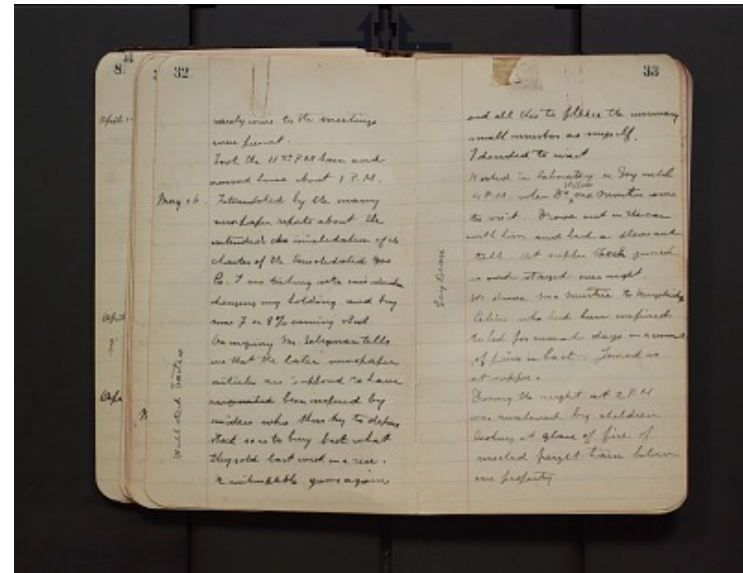 8
32
April
rarely come to the meetings
were present.
Took the 11 P.M. train and
arrived home about 1 P.M.
May 16
Interested by the many
newspaper reports about the
intended of its
charter of the Consolidated Gas
Co. I was
changing my holding and buy
some 7 or 8% earning stock
On inquiry Mr. tells
me that the later newspaper
articles are supposed to have
been inspired by
insiders who thus try to depress
stock so as to buy back what
they sold last week in a rise.
A contemptible game again
Wall street
33
and all this to fleece the unwary
small investor as myself.
I decided to wait
Worked in laboratory on Soy until
4 P.M. when Dr. Mc Murtrie came
to visit. Drove out in the car
with him and had a pleasant
talk. At supper joined
us and stayed over night
We drove Mc Murtrie to
Celine who had been confined
to bed for several days on account
of pains in back. Joined us
at supper.
During the night at 2 P.M
was awakened by children
looking at glare of fire of
wrecked freight train below
our property
Soy bean